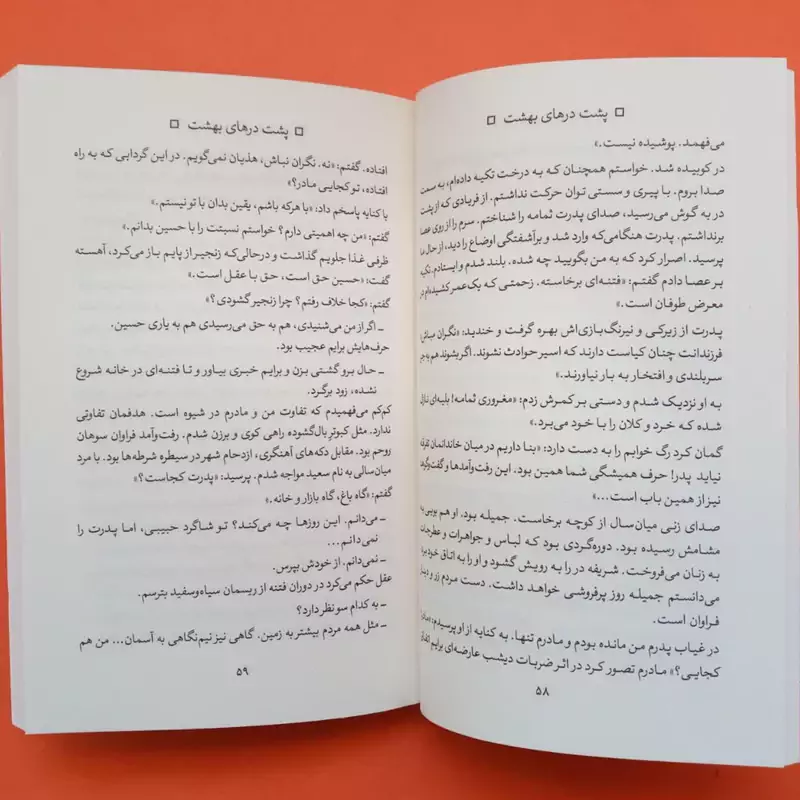 پشت درهای بهشت
می‌فهمد. پوشیده نیست.»
در کوبیده شد. خواستم همچنان که به درخت تکیه داده‌ام، به سمت
صدا بروم. با پیری و سستی توان حرکت نداشتم. از فریادی که از پشت
در به گوش می‌رسید، صدای پدرت ثمامه را شناختم. سرم را از روی عصا
برنداشتم. پدرت هنگامی‌که وارد شد و برآشفتگی اوضاع را دید، از حال ما
پرسید. اصرار کرد که به من بگویید چه شده. بلند شدم و ایستادم. تکیه
بر عصا دادم گفتم: «فتنه‌ای برخاسته. زحمتی که یک‌عمر کشیده‌ام در
معرض طوفان است.»
پدرت از زیرکی و نیرنگ‌بازی‌اش بهره گرفت و خندید: «نگران مباش
فرزندانت چنان کیاست دارند که اسیر حوادث نشوند. اگر بشوند هم به جز
سربلندی و افتخار به بار نیاورند.»
به او نزدیک شدم و دستی بر کمرش زدم: «مغروری ثمامه! بلیه‌ای نازل
شده که خرد و کلان را با خود می‌برد.»
گمان کرد رگ خوابم را به دست دارد: «بنا داریم در میان خاندانمان تفرقه
نیاید. پدر! حرف همیشگی شما همین بود. این رفت‌وآمدها و گفت‌وگوها
نیز از همین باب است...»
صدای زنی میان‌سال از کوچه برخاست. جمیله بود. او هم بویی به
مشامش رسیده بود. دوره‌گردی بود که لباس و جواهرات و عطرجات
به زنان می‌فروخت. شریفه در را به رویش گشود و او را به اتاق خود برد
می‌دانستم جمیله روز پرفروشی خواهد داشت. دست مردم زر و دینار
فراوان است.
در غیاب پدرم من مانده بودم و مادرم تنها. به کنایه از او پرسیدم: «مادر
کجایی؟» مادرم تصور کرد در اثر ضربات دیشب عارضه‌ای برایم اتفاق
۵۸
پشت درهای بهشت
افتاده. گفتم: «نه. نگران نباش، هذیان نمی‌گویم. در این گردابی که به راه
افتاده، تو کجایی مادر؟»
با کنایه پاسخم داد: «با هرکه باشم، یقین بدان با تو نیستم.»
گفتم: «من چه اهمیتی دارم؟ خواستم نسبتت را با حسین بدانم.»
ظرفی غذا جلویم گذاشت و درحالی‌که زنجیر از پایم باز می‌کرد، آهسته
گفت: «حسین حق است، حق با عقل است.»
گفتم: «کجا خلاف رفتم؟ چرا زنجیر گشودی؟»
ـ اگر از من می‌شنیدی، هم به حق می‌رسیدی هم به یاری حسین.
حرف‌هایش برایم عجیب بود.
ـ حال برو گشتی بزن و برایم خبری بیاور و تا فتنه‌ای در خانه شروع
نشده، زود برگرد.
کم‌کم می‌فهمیدم که تفاوت من و مادرم در شیوه است. هدفمان تفاوتی
ندارد. مثل کبوترِ بال‌گشوده راهی کوی و برزن شدم. رفت‌وآمد فراوان سوهان
روحم بود. مقابل دکه‌های آهنگری، ازدحام شهر در سیطره شرطه‌ها بود. با مرد
میان‌سالی به نام سعید مواجه شدم. پرسید: «پدرت کجاست؟»
گفتم: «گاه باغ، گاه بازار و خانه.»
ـ می‌دانم. این روزها چه می‌کند؟ تو شاگرد حبیبی، اما پدرت را
نمی‌دانم...
ـ نمی‌دانم. از خودش بپرس.
عقل حکم می‌کرد در دوران فتنه از ریسمان سیاه‌وسفید بترسم.
ـ به کدام سو نظر دارد؟
ـ مثل همه مردم بیشتر به زمین. گاهی نیز نیم‌نگاهی به آسمان... من هم
۵۹